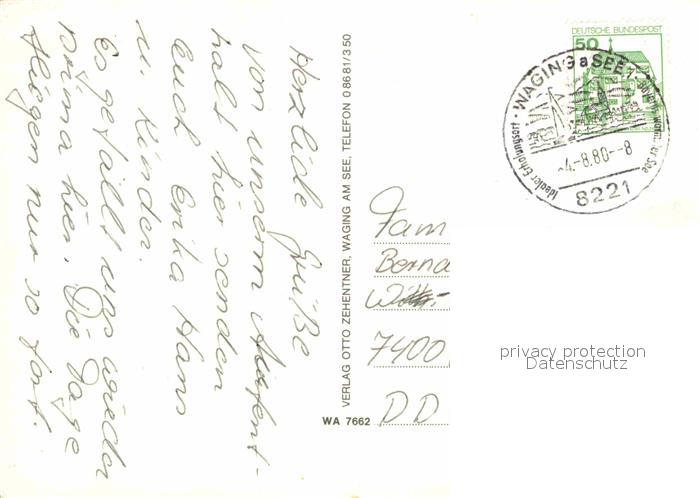 Herzliche Grüße
von unserm Aufent-
halt hier senden
Euch Erika Hans
u. Kinder.
Es gefällt uns wieder
prima hier. Die Tage
fliegen nur so fort.
VERLAG OTTO ZEHENTNER, WAGING AM SEE, TELEFON 08681/350
WA 7662
DEUTSCHE BUNDESPOST
50
WAGING a SEE 1
Idealer Erholungsort
-4.-8.80--8
8221
Fam
Berna
7400
DD
privacy protection
Datenschutz